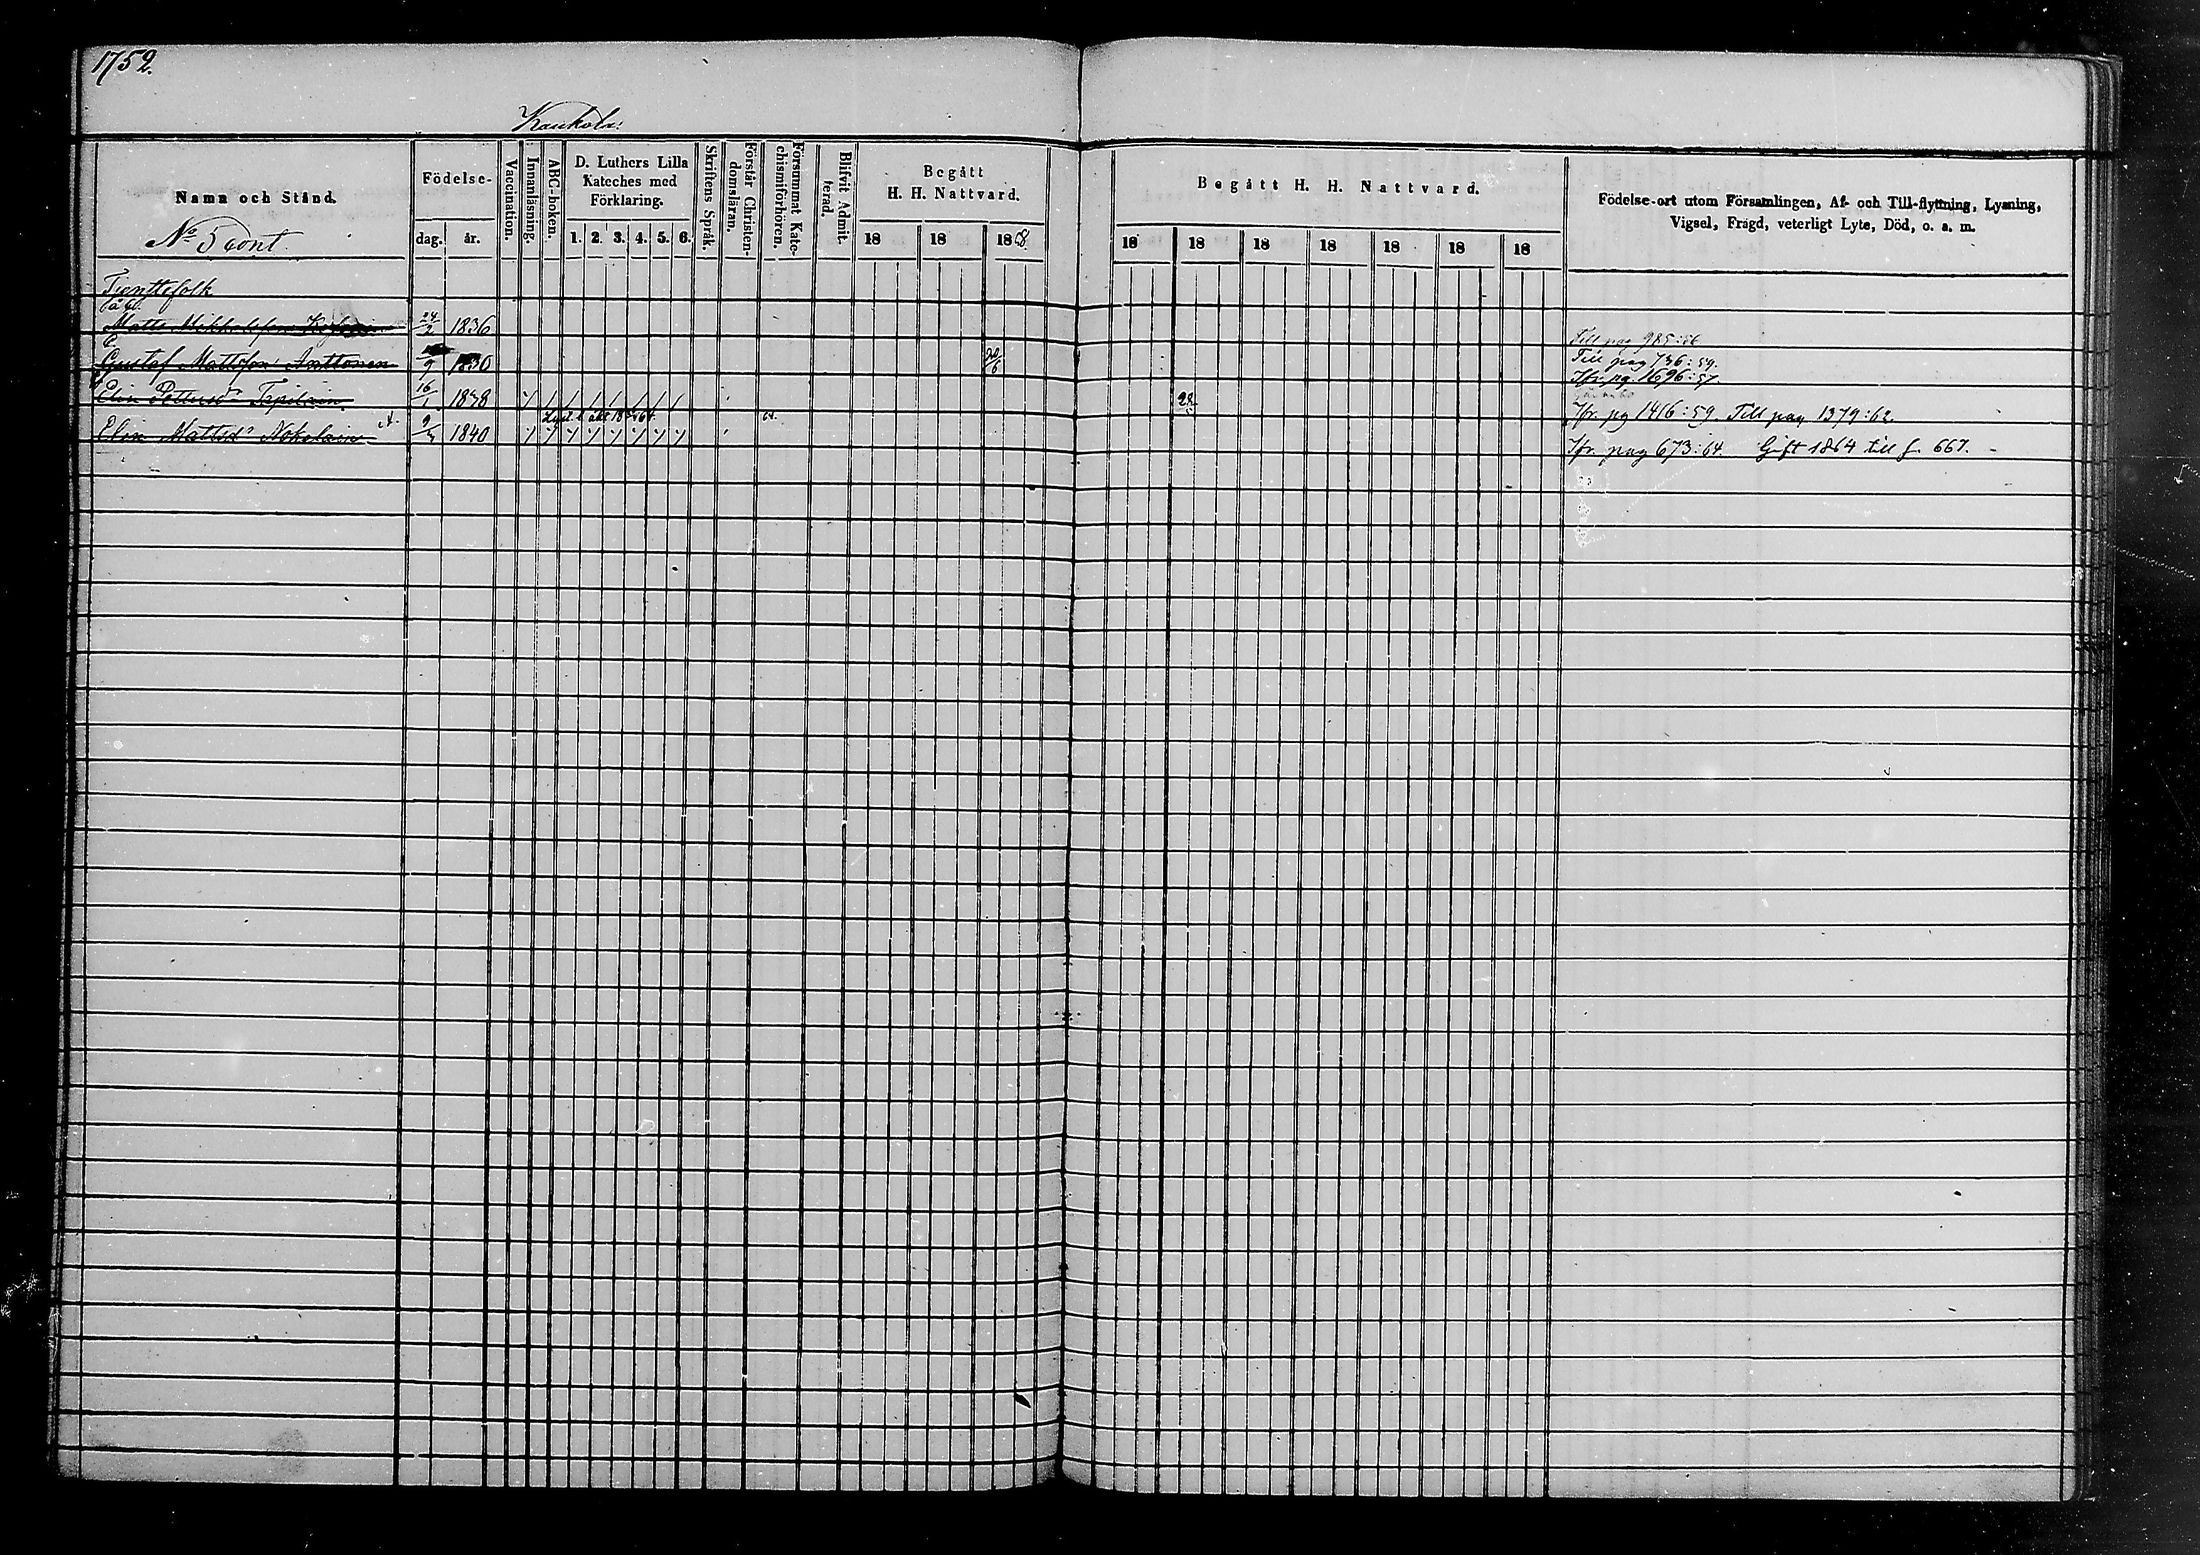 1752.
Kaukola.
Namn och Stånd.
Födelse-
dag. år.
Vaccination.
Innanläsning.
ABC-boken.
D. Luthers Lilla
Kateches med
Förklaring.
1. 2. 3. 4. 5. 6.
Skriftens Språk.
Förstår Christen-
domsläran.
Försummat Kate-
chismiförhören.
Blifvit Admit-
terad.
Begått
H. H. Nattvard.
18 18 1868.
Begått H. H. Nattvard.
18 18 18 18 18 18 18
Födelse-ort utom Församlingen, Af- och Till-flyttning, Lysning,
Vigsel, Frägd, veterligt Lyte, Död, o. a. m.
No 5 cont.
Tjenstefolk
Matts 24/2 1836
Till pag 985:56
Gustaf Mattsson Anttonen 9 1830
Till pag 736:59.
Ifr. pg. 1696:57.
Elin Pettersdr 16/1 1838 / / / / / / /
22
Ifr. pg 1416:59 Till pag 1379:62.
Elin Mattsd Nokelain 1840
Ifr. pag 673:64. Gift 1864 till f. 667.